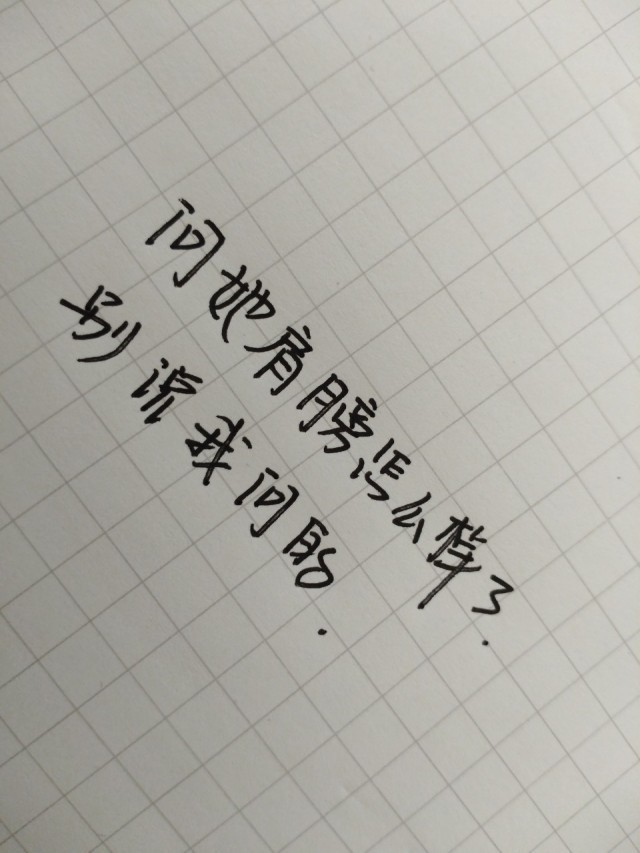 问她肩膀怎么样了.
别说我问的.